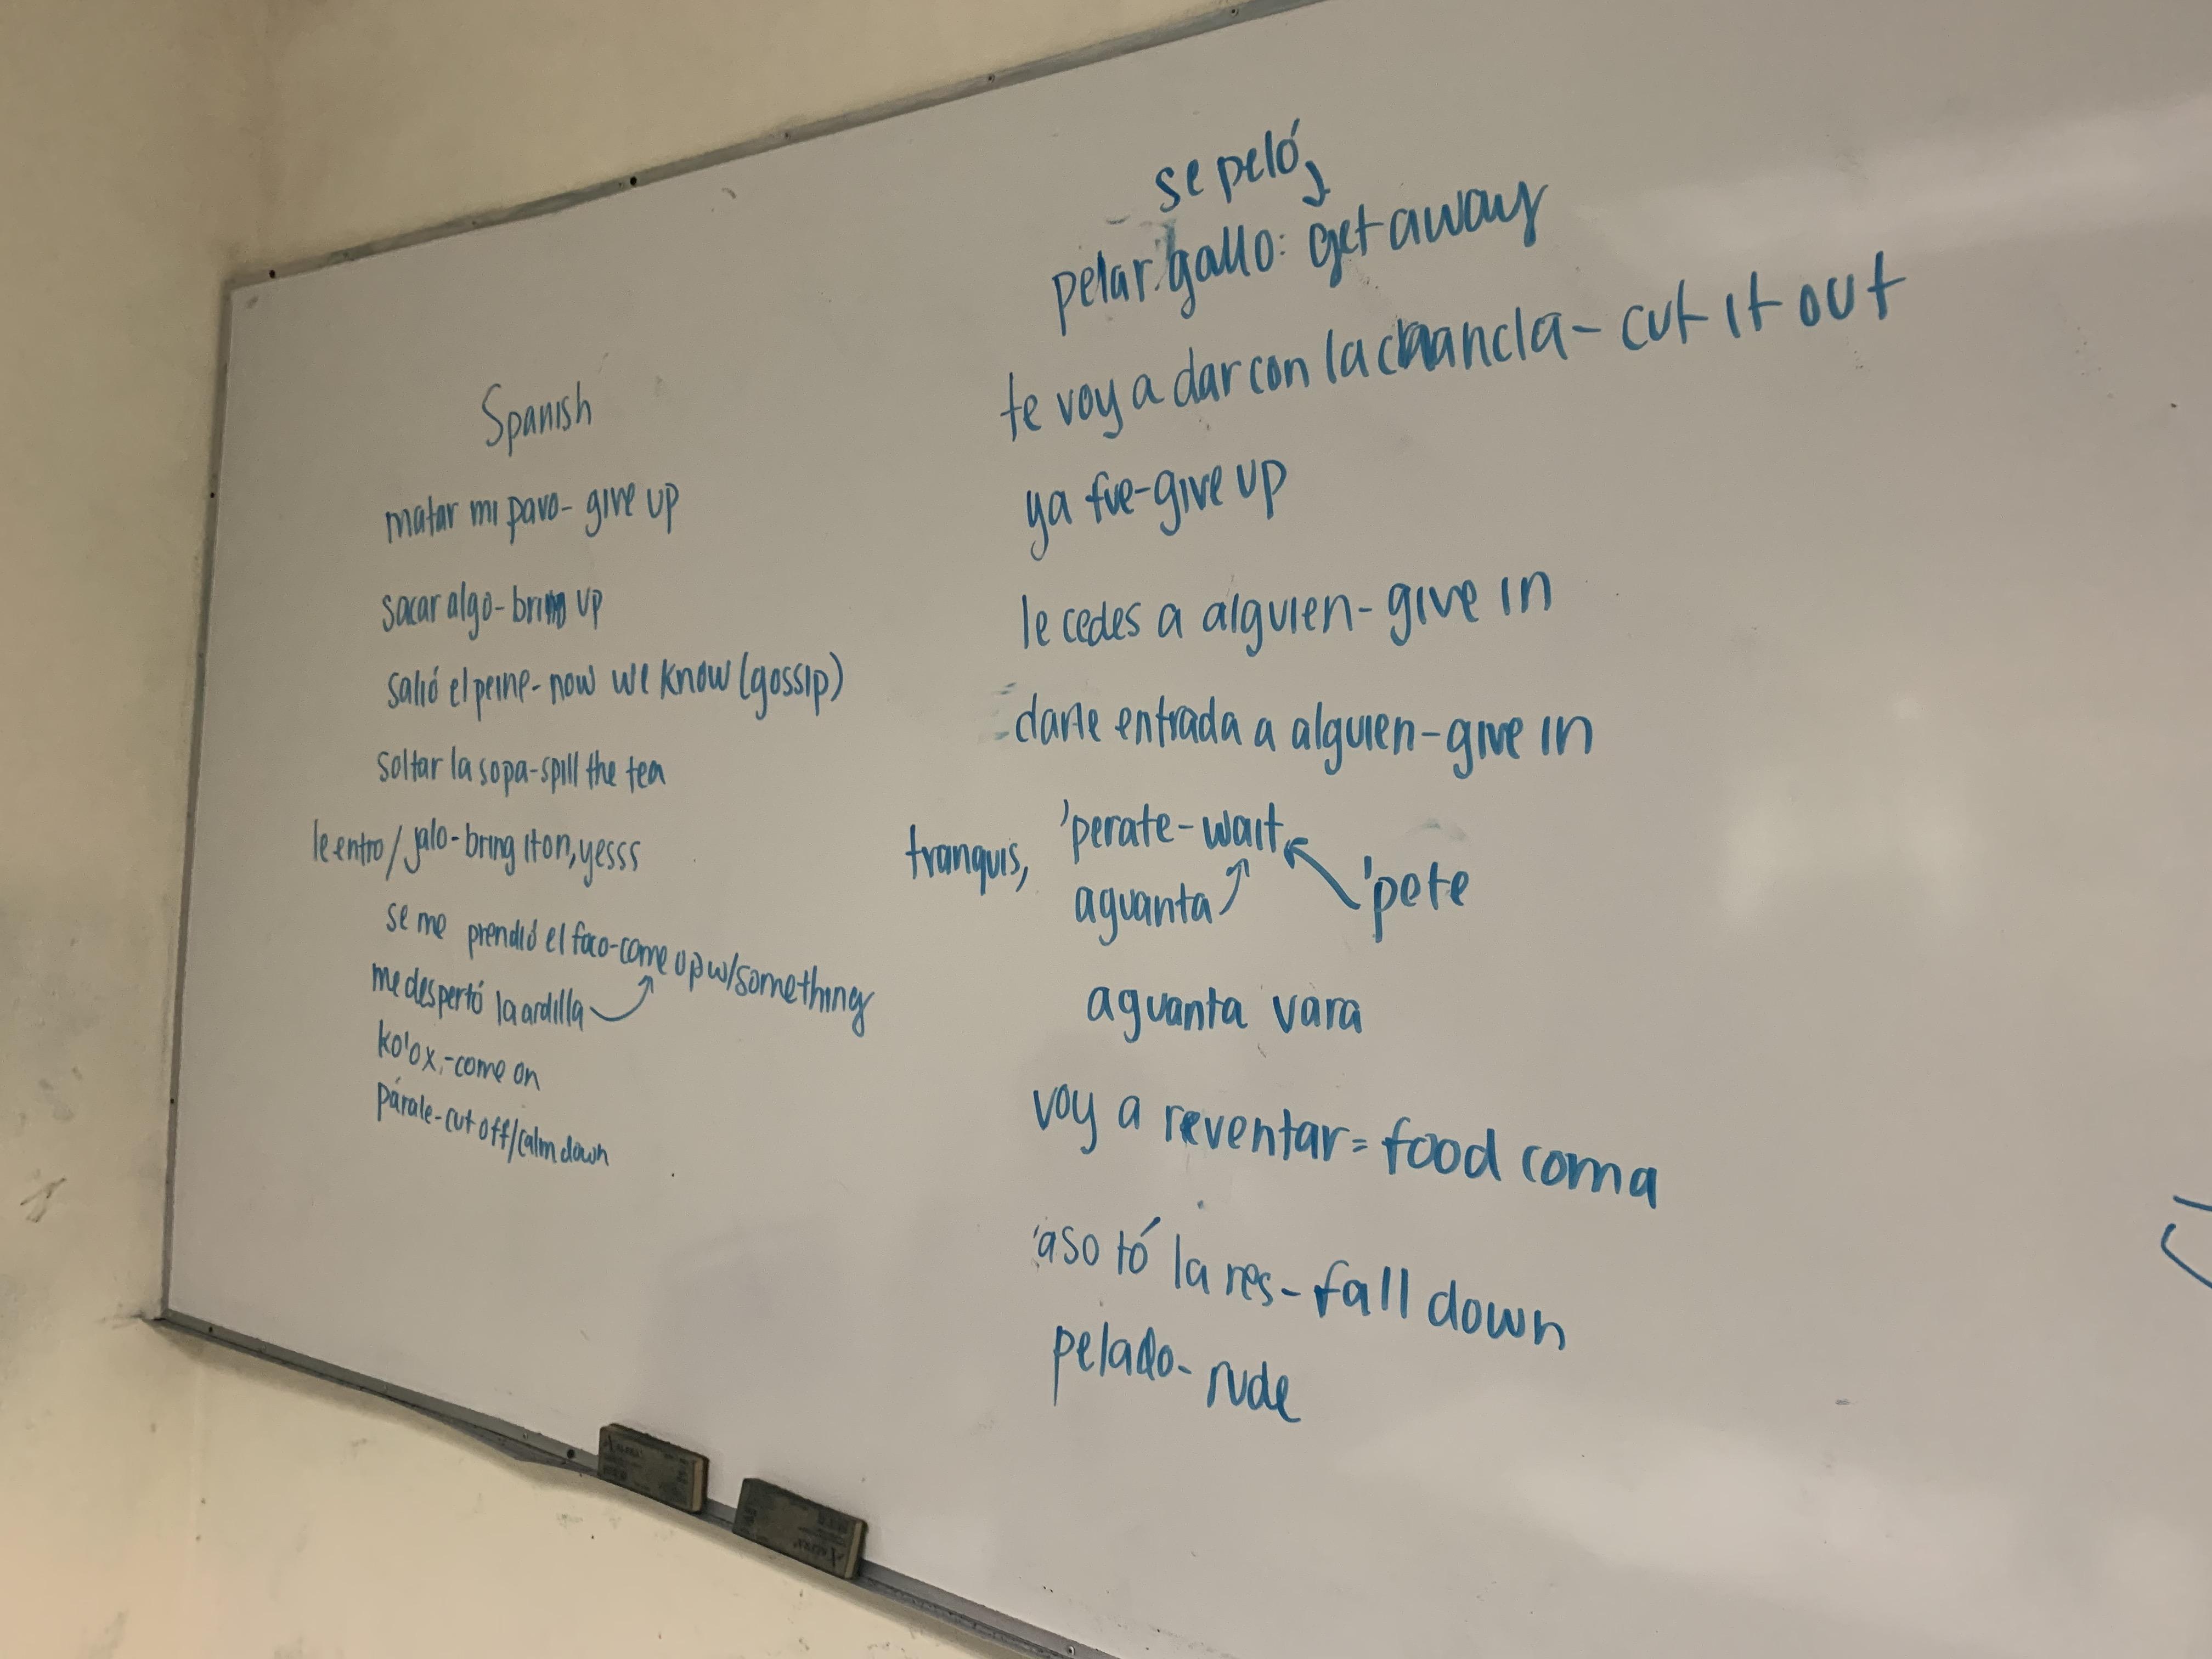 Spanish
matar mi pavo- give up
sacar algo- bring up
salió el peine- now we know (gossip)
soltar la sopa-spill the tea
le entro / jalo- bring it on, yesss
se me prendió el foco-come up w/something
me despertó la ardilla
ko'ox,-come on
párale-cut off/calm down
se peló,
pelar gallo: get away
te voy a dar con la chancla- cut it out
ya fue-give up
le cedes a alguien- give in
darle entrada a alguien-give in
tranquis, 'perate-wait
aguanta
'pete
aguanta vara
voy a reventar= food coma
'aso tó la res- fall down
pelado- rude